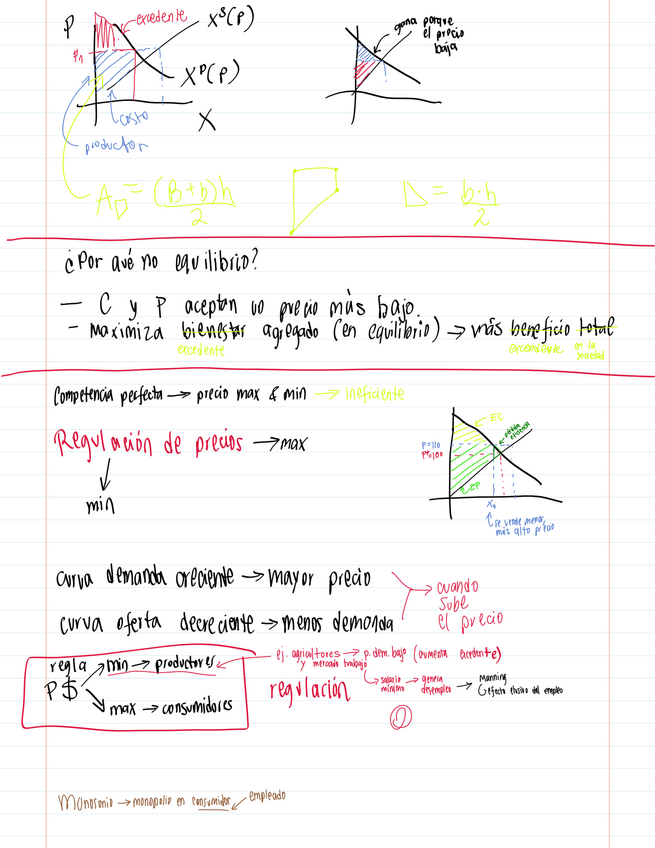 P
excedente
X^S(P)
P₁
X^D(P)
costo
X
productor
gana porque
el precio
baja
A = (B+b)h / 2
= b·h / 2
¿Por qué no equilibrio?
— C y P aceptan un precio más bajo.
- maximiza bienestar agregado (en equilibrio) → más beneficio total
excedente
excendente en la
sociedad
Competencia perfecta → precio max & min → ineficiente
Regulación de precios → max
min
EC
pérdida
eficiencia
P=110
P*=100
EP
X₀
se vende menor,
más alto precio
curva demanda creciente → mayor precio
curva oferta decreciente → menos demanda
→ cuando
sube
el precio
regla
P$
min → productores
max → consumidores
ej. agricultores → p. dem. bajo (aumenta excedente)
y mercado trabajo
regulación
salario
mínimo
→ genera
desempleo
→ Manning
efecto elusivo del empleo
Monosonio → monopolio en consumidor
empleado